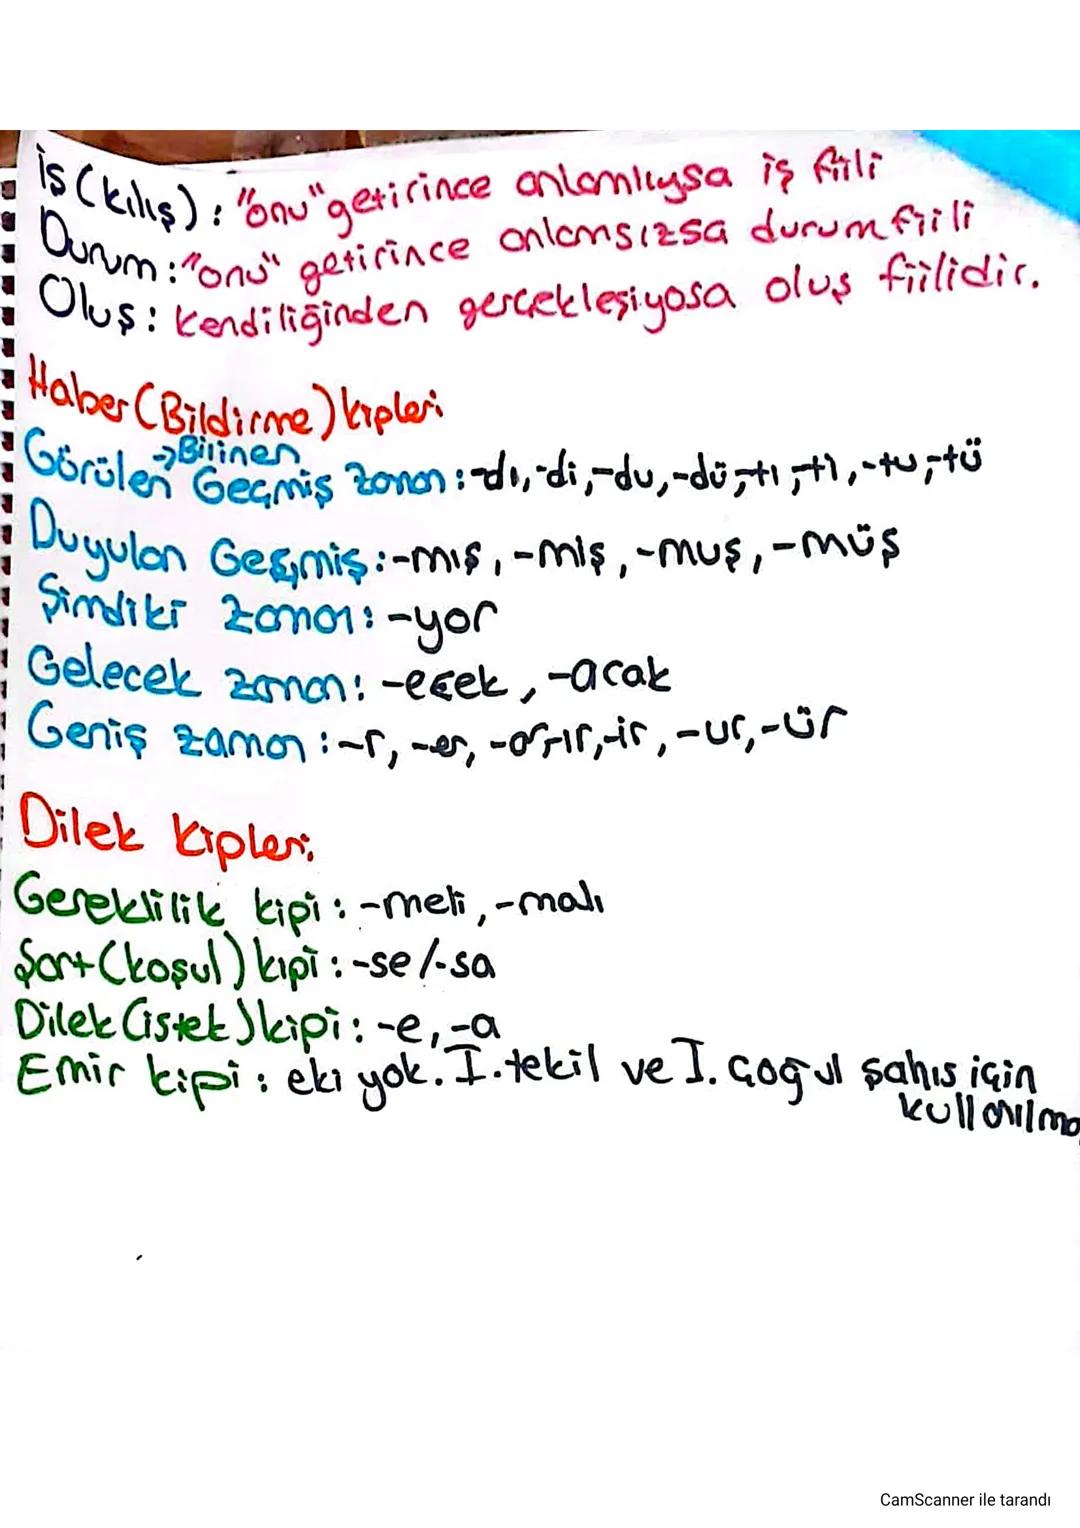 İş (kılış) : "onu" getirince anlamlıysa iş fiili
Durum : "onu" getirince anlamsızsa durum fiili
Oluş : kendiliğinden gerçekleşiyosa oluş fiilidir.
Haber (Bildirme) kipleri
→Bilinen
Görülen Geçmiş zaman : -dı, -di, -du, -dü, -tı, -ti, -tu, -tü
Duyulan Geçmiş : -mış, -miş, -muş, -müş
Şimdiki zaman : -yor
Gelecek zaman : -ecek, -acak
Geniş zaman : -r, -er, -ar, -ır, -ir, -ur, -ür
Dilek kipleri
Gereklilik kipi : -meli, -malı
Şart (koşul) kipi : -se / -sa
Dilek (istek) kipi : -e, -a
Emir kipi : eki yok. I. tekil ve I. çoğul şahıs için
kullanılma
CamScanner ile tarandı